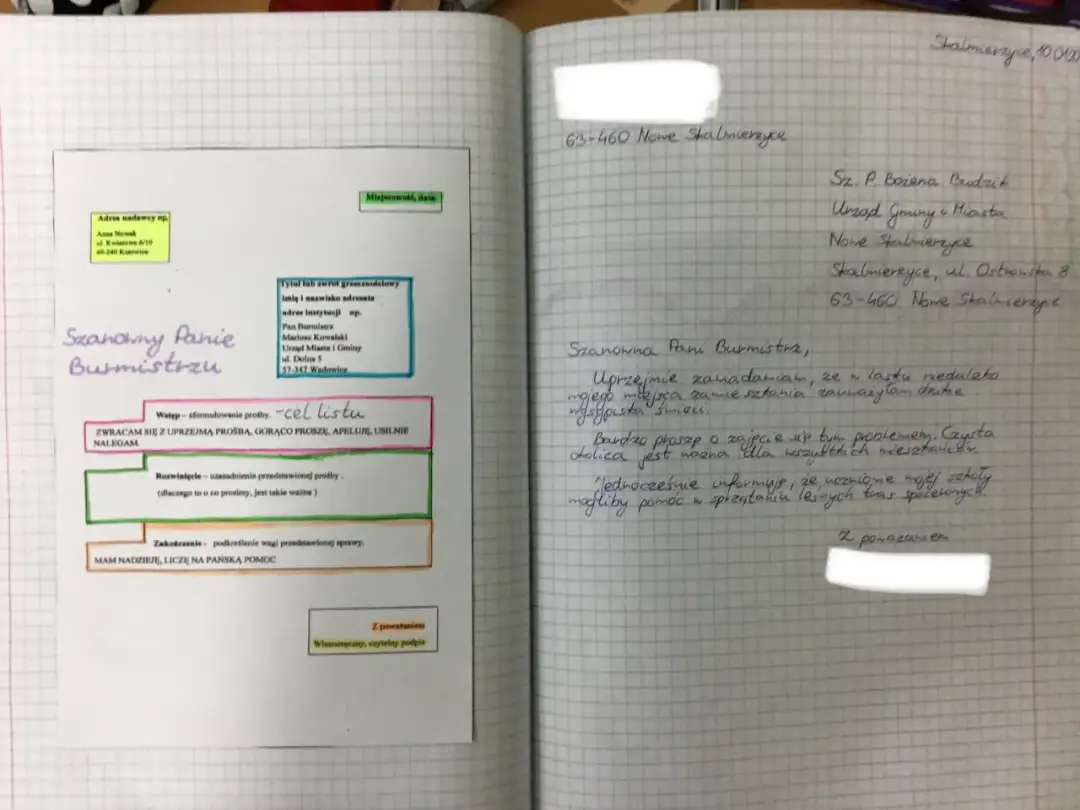 Miejscowość, data
Adres nadawcy np.
Anna Nowak
ul. Kwiatowa 6/10
49-240 Katowice
Tytuł lub zwrot grzecznościowy
imię i nazwisko adresata
adres instytucji np.
Pan Burmistrz
Mariusz Kowalski
Urząd Miasta i Gminy
ul. Dolna 5
57-342 Wadowice
Szanowny Panie
Burmistrzu
Wstęp – sformułowanie prośby. - cel listu
ZWRACAM SIĘ Z UPRZEJMĄ PROŚBĄ, GORĄCO PROSZĘ, APELUJĘ, USILNIE
NALEGAM.
Rozwinięcie – uzasadnienie przedstawionej prośby.
(dlaczego to o co prosimy, jest takie ważne )
Zakończenie - podkreślenie wagi przedstawionej sprawy.
MAM NADZIEJĘ, LICZĘ NA PAŃSKĄ POMOC
Z poważaniem
Własnoręczny, czytelny podpis
Skalmierzyce, 10
63-460 Nowe Skalmierzyce
Sz. P. Bożena Budzik
Urząd Gminy i Miasta
Nowe Skalmierzyce
Skalmierzyce, ul. Ostrowska 8
63-460 Nowe Skalmierzyce
Szanowna Pani Burmistrz,
Uprzejmie zawiadamiam, że w lasku niedaleko
mojego miejsca zamieszkania zauważyłam dzikie
wysypisko śmieci.
Bardzo proszę o zajęcie się tym problemem. Czysta
okolica jest ważna dla wszystkich mieszkańców.
Jednocześnie informuję, że uczniowie mojej szkoły
mogliby pomóc w sprzątaniu leśnych tras spacerowych.
Z poważaniem